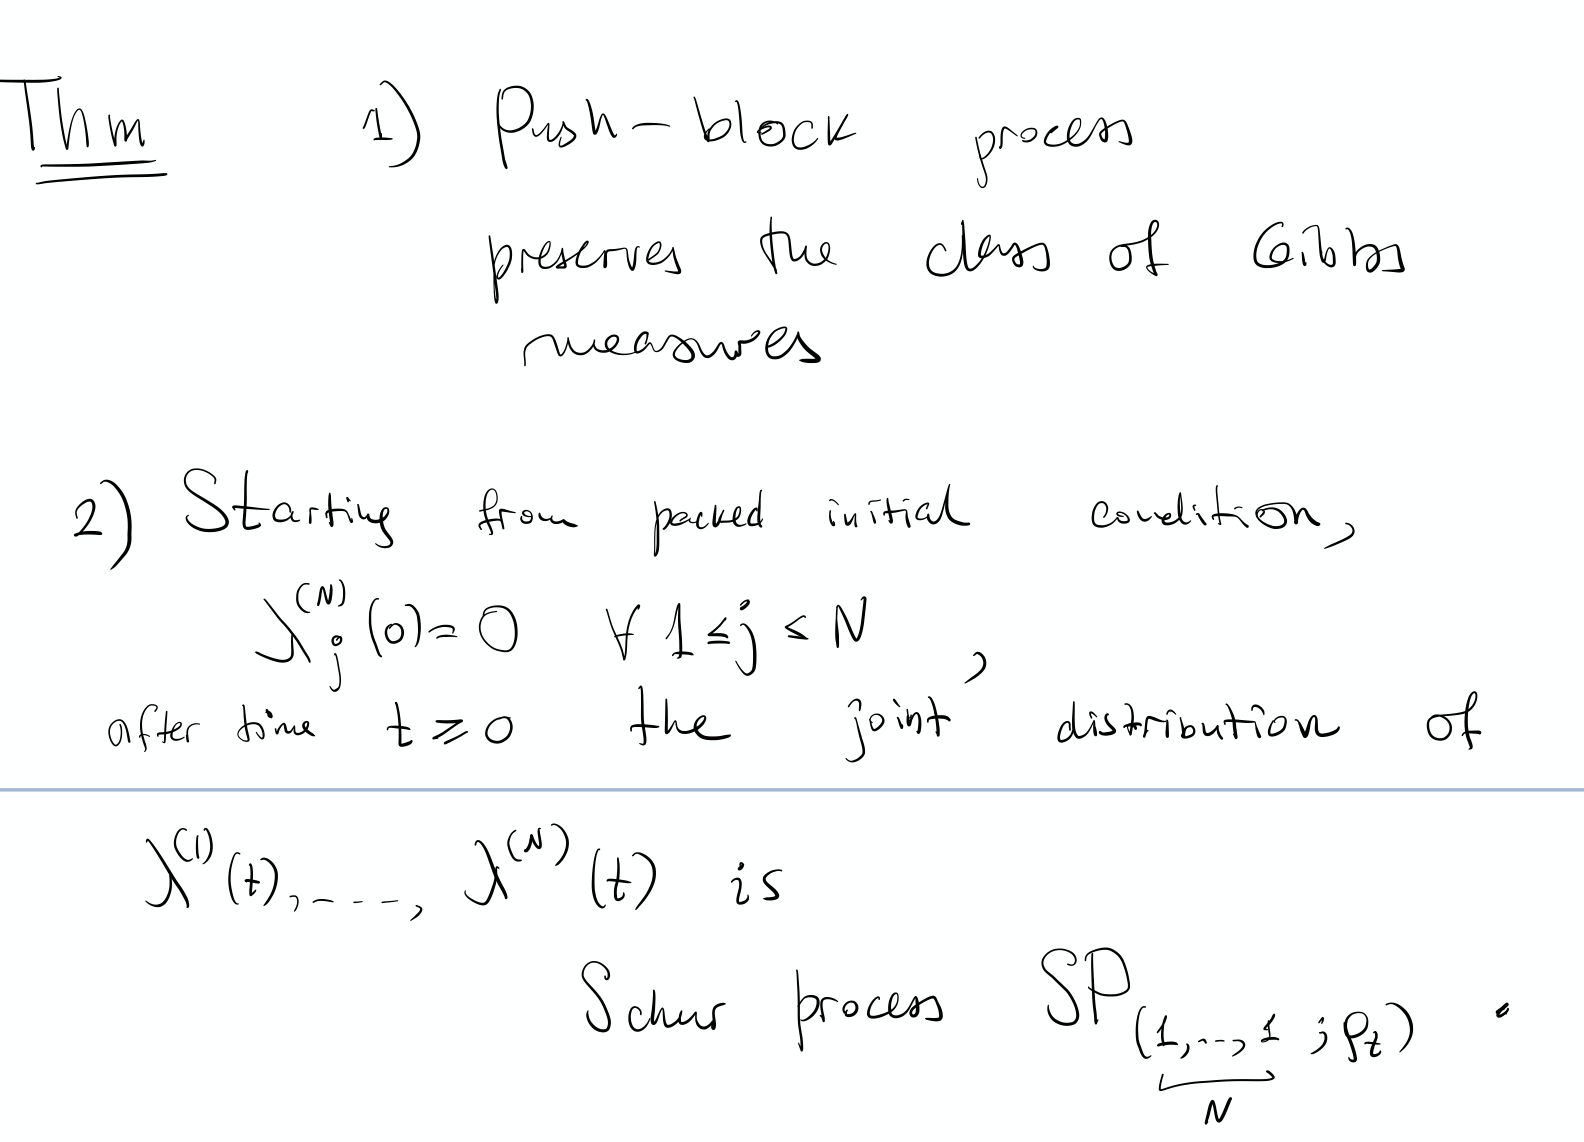 Thm 1) Push-block process
preserves the class of Gibbs
measures
2) Starting from packed initial condition,
λ_j^{(N)}(0)=0 ∀ 1≤j≤N,
after time t≥0 the joint distribution of
λ^{(1)}(t),----, λ^{(N)}(t) is
Schur process SP_{(1,...,1 ; ρ_t)}.
N